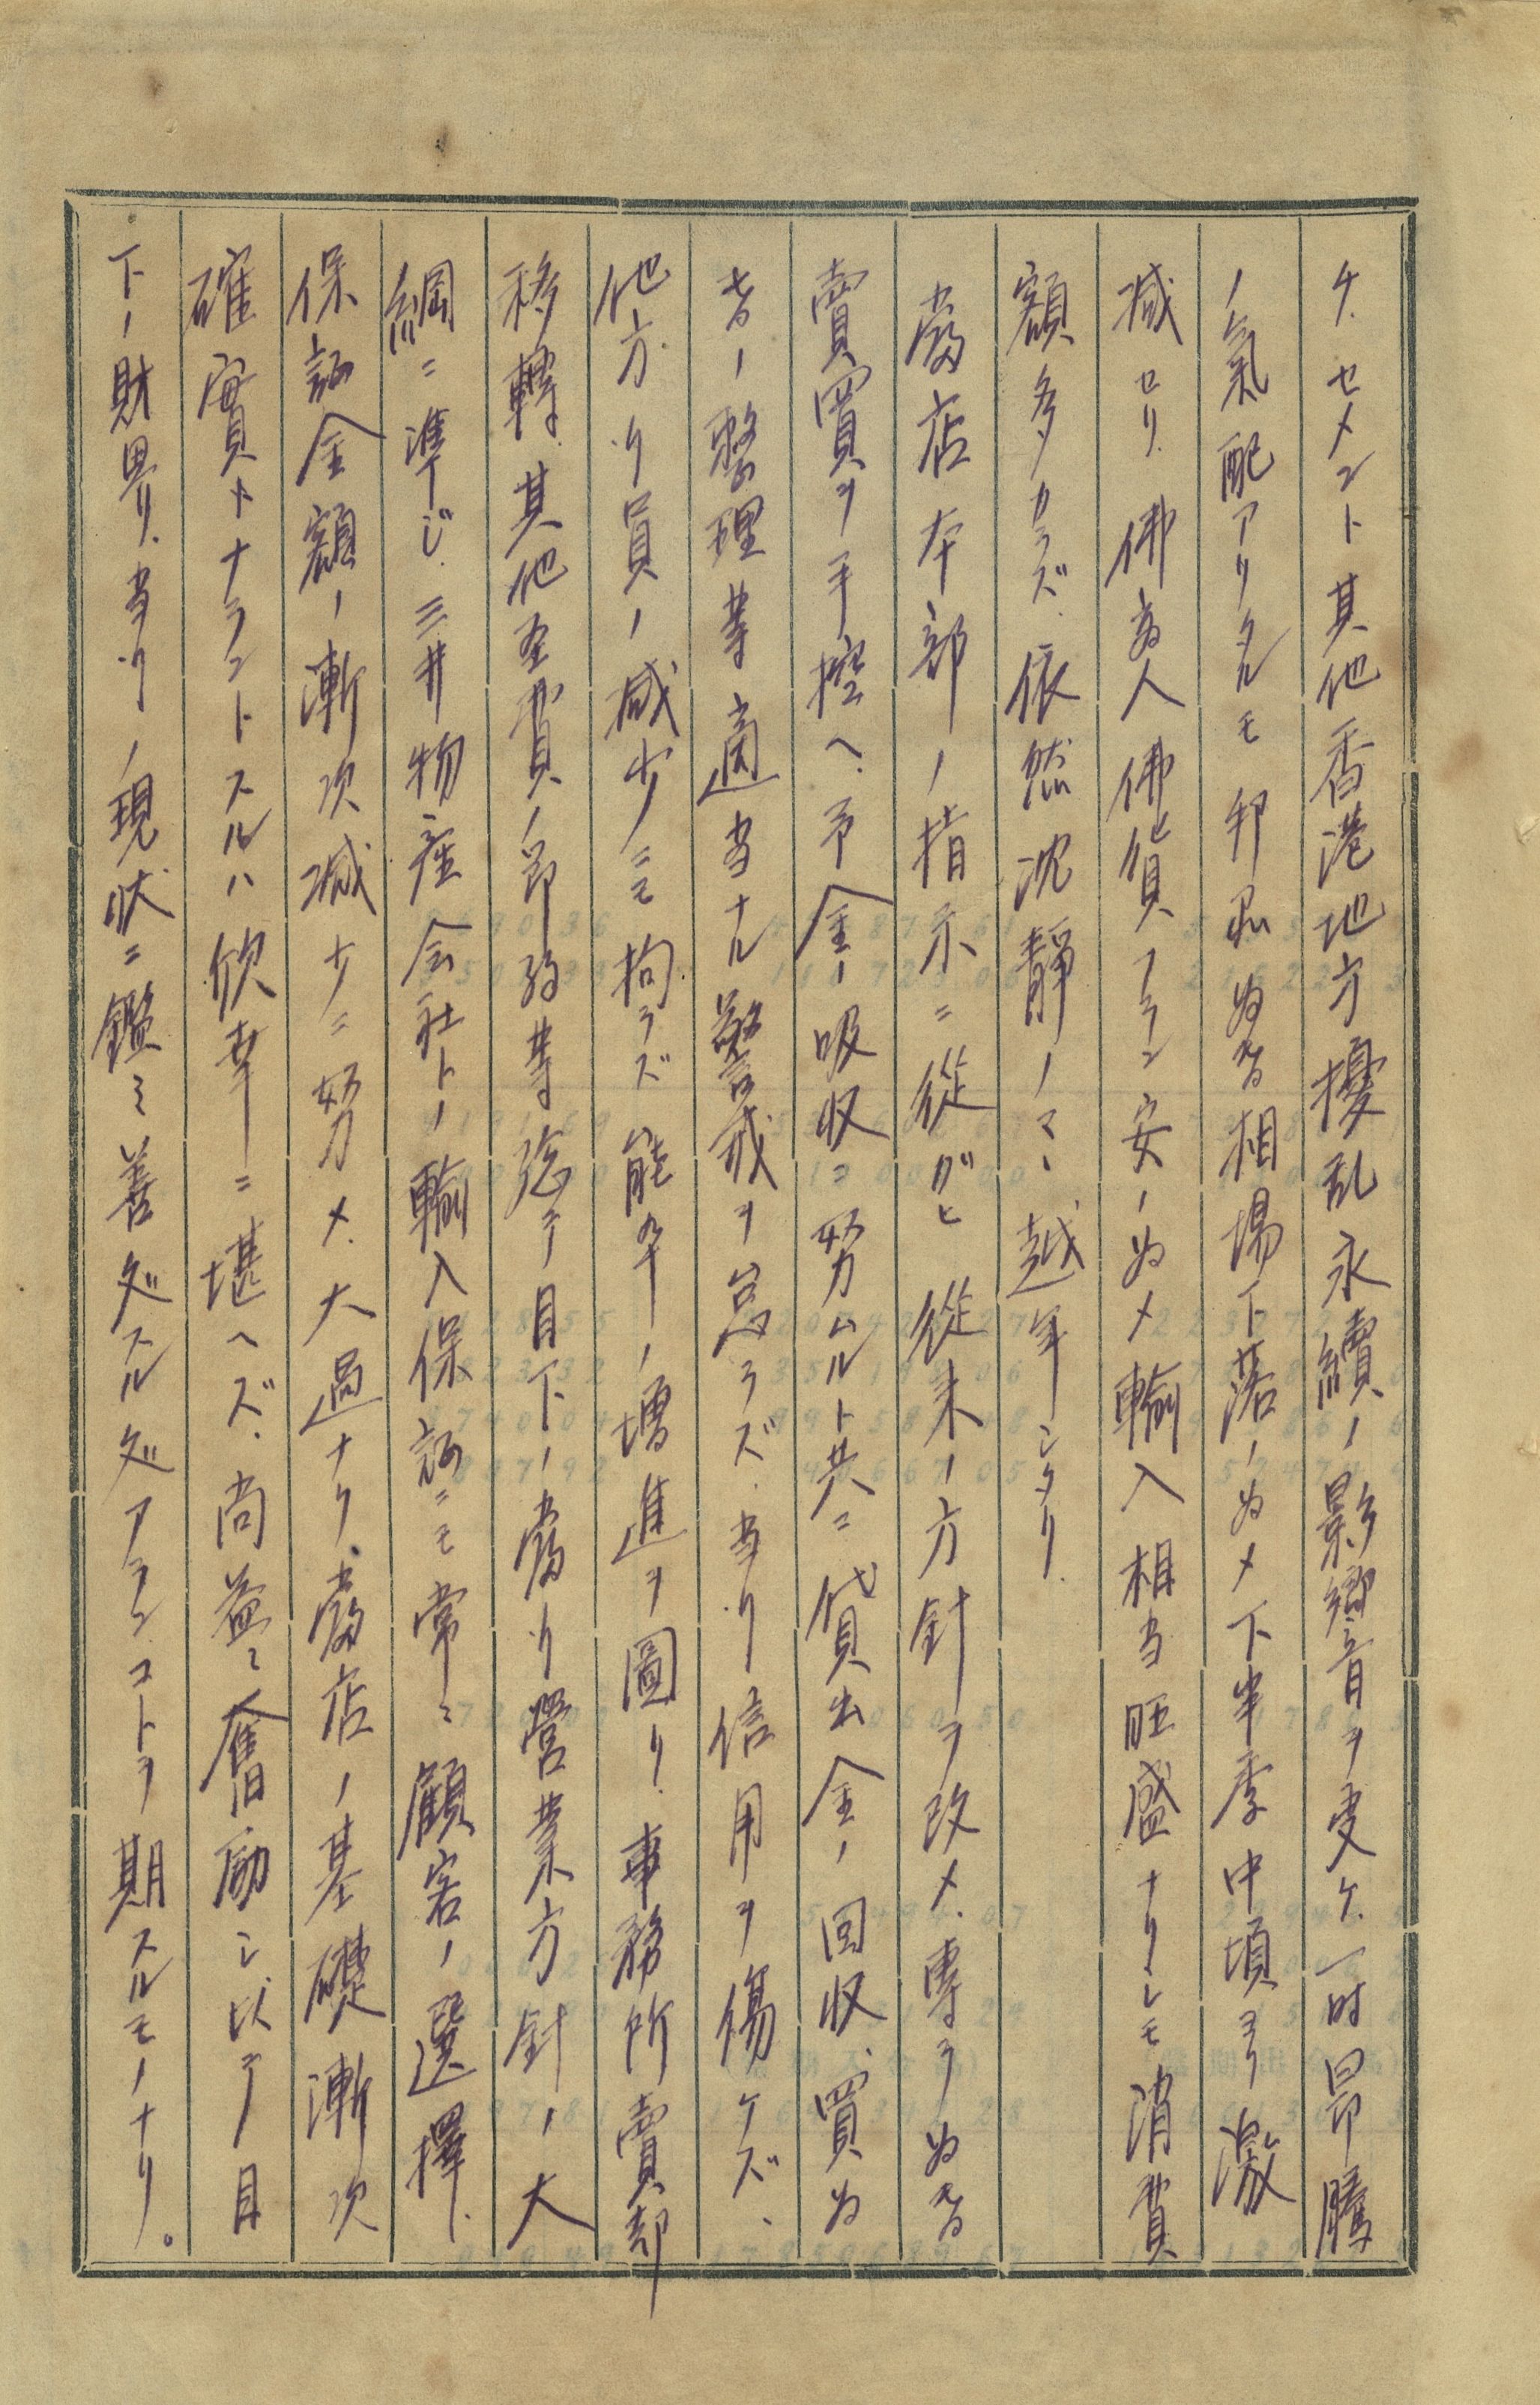 チ、セメント其他香港地方擾乱永續ノ影響ヲ受ケ、一時昻騰
ノ氣配アリタルモ邦品為替相場下落ノ為メ下半季中頃ヨリ激
減セリ、佛為人佛貨フラン安ノ為メ輸入相当旺盛ナリシモ消費
額多カラズ、依然沈靜ノマヽ越年シタリ、
當店本部ノ指示ニ從ガヒ從来ノ方針ヲ改メ、専ラ為替
賣買ヲ手控ヘ、予金ノ吸収ニ努ムルト共ニ貸出金ノ回収、買為
替ノ整理等適当ナル警戒ヲ怠ラズ、当リ信用ヲ傷ケズ、
他方リ員ノ減少ニモ拘ラズ能率ノ増進ヲ圖リ、事務所賣却
移轉、其他圣費ノ節約等總テ目下ノ當リ營業方針ノ大
綱ニ準ジ、三井物産会社トノ輸入保証ニモ常ニ顧客ノ選擇、
保証金額ノ漸次減少ニ努メ、大過ナク、當店ノ基礎漸次
確實トナラントスルハ欣幸ニ堪ヘズ、尚益々奮励シ以テ目
下ノ財界リ、当リノ現状ニ鑑ミ善処スル処アランコトヲ期スルモノナリ。